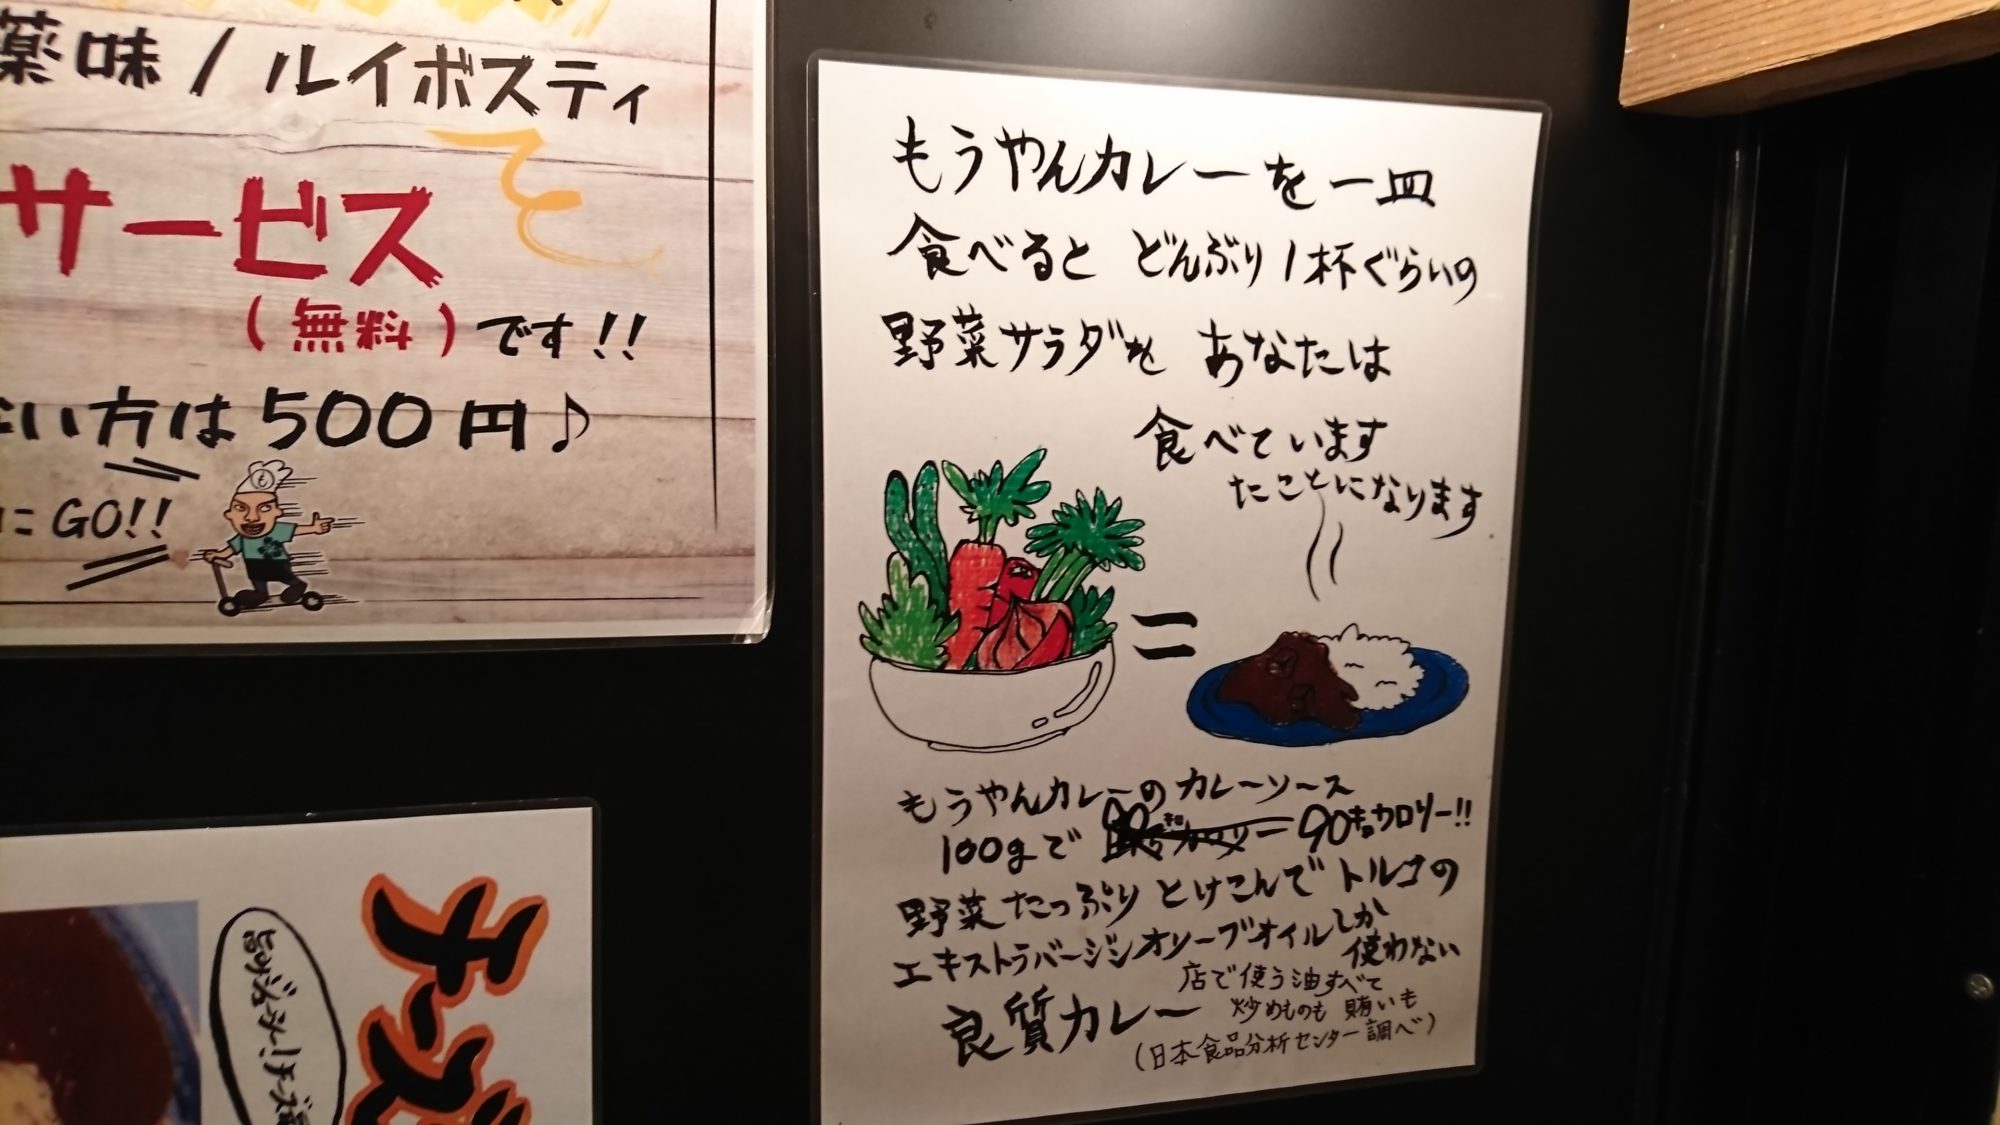 薬味/ルイボスティ
サービス
(無料)です!!
い方は500円♪
にGO!!
もうやんカレーを一皿
食べると どんぶり1杯ぐらいの
野菜サラダを あなたは
食べています
たことになります
=
もうやんカレーのカレーソース
100gで 90キロカロリー!!
野菜たっぷりとけこんでトルコの
エキストラバージンオリーブオイルしか
使わない
店で使う油すべて
良質カレー 炒めものも 賄いも
(日本食品分析センター調べ)
チーズ
旨のジューシー!チーズ